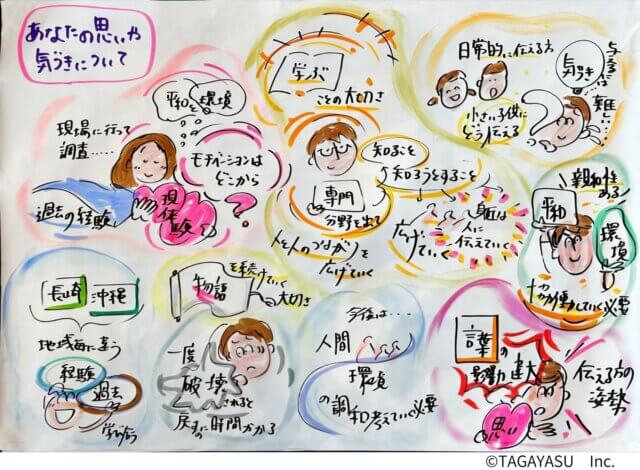 あなたの思いや
気づきについて
平和と環境
現場に行って
調査……
モチベーションは
どこから
？
過去の経験
現体験
学ぶ
ことの大切さ
知ること
知ろうとすること
専門
分野を出て
人と人のつながりを
広げていく
広げていく
身近な
人に
伝えていく
日常的に伝える方
小さい子供に
どう伝える
気づき
与えるには
難しい
親和性
ある!
平和
環境
働いていく必要
長崎
沖縄
地域毎に違う
経験
過去
学びあう
物語
を続けていく
大切さ
一度
破壊
されると
戻すの時間かかる
今後は…
人間
環境
の調和考えていく必要
言葉の
影響力建大
思い
伝える方の
姿勢
©TAGAYASU Inc.